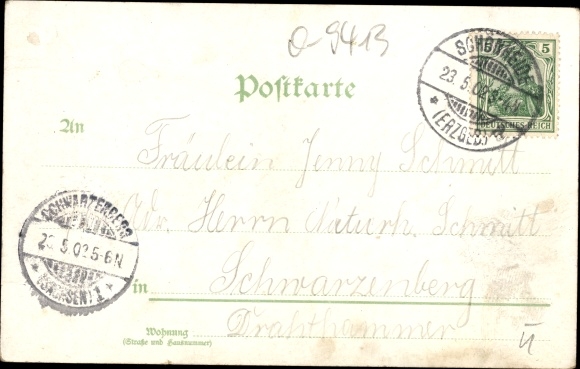 Q-9413
SCHÖNHEIDE
23.5.02
(ERZGEB.)
5
DEUTSCHES REICH
Postkarte
An
Fräulein Jenny Schmitt
Adr. Herrn Naturh. Schmitt
SCHWARZENBERG
23.5.02 5-6N
(SACHSEN) 1
in Schwarzenberg
Wohnung
(Straße und Hausnummer)
Drahthammer